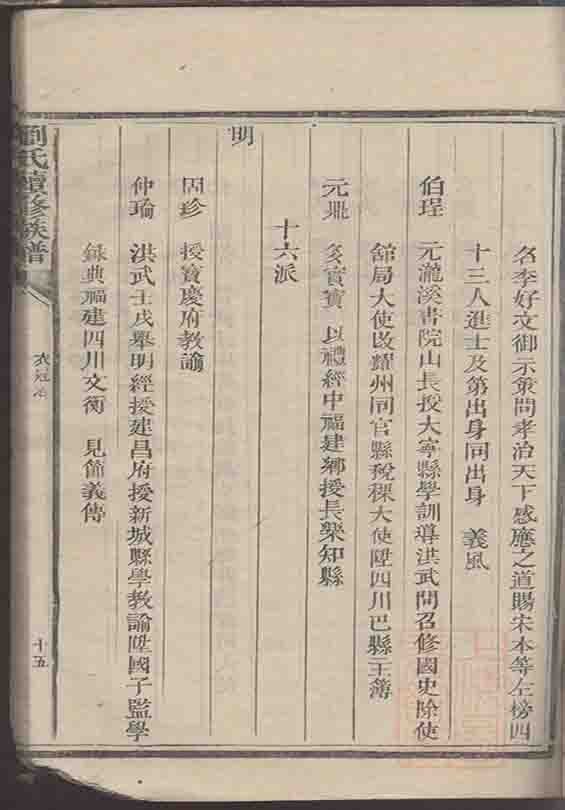 名李好文御示策問孝治天下感應之道賜宋本等左榜四
十三人進士及第出身同出身 義風
伯珵 元瀧溪書院山長授大寧縣學訓導洪武間召修國史除使
舘局大使改耀州同官縣稅稞大使陞四川巴縣主簿
元 以禮經中福建鄉授長樂知縣
十六派
明
固珍 授寶慶府教諭
仲瑜 洪武壬戌舉明經授建昌府授新城縣學教諭陞國子監學
錄典福建四川文衡 見節義傳
劉氏續修族譜
衣冠
十五